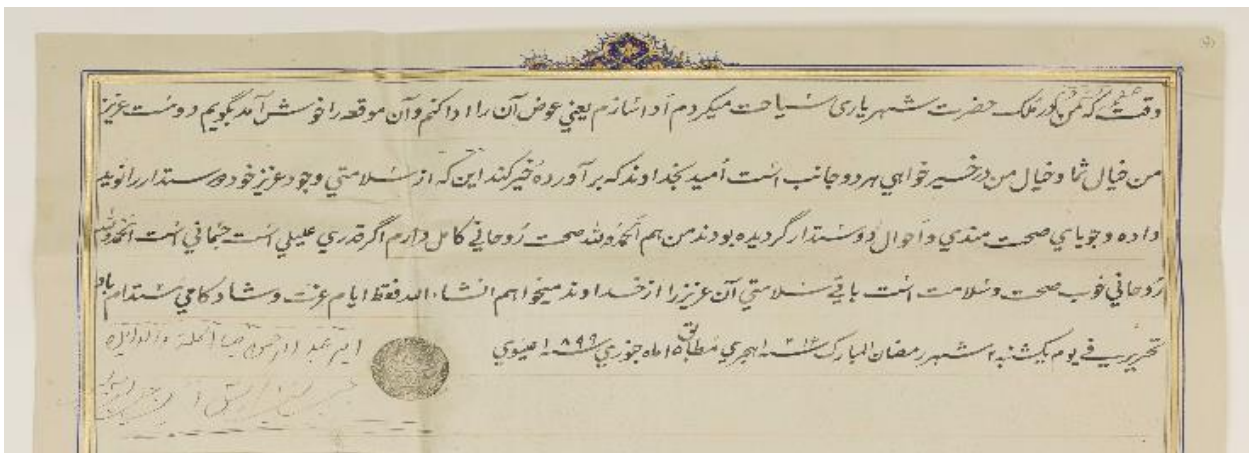 وقت که من در ملک حضرت شهریاری سیاحت میکردم ادا سازم یعنی عوض آن را ادا کنم و آن موقعه را خوش آمد بگویم دوست عزیز
من خیال شما و خیال من در خیر خواهی هر دو جانب است اُمید بخداوند که برآورده خیر کند این که از سلامتي وجود عزیز خود دوستدار را نوید
داده و جویاي صحت مندي و احوال دوستدار گردیده بودند من هم الحمدُ لله صحت رُوحاني کامل دارم اگر قدري علیلي است جسماني است الحمد لله
رُوحاني خوب صحت و سلامت است باقي سلامتي آن عزیز را از خداوند میخواهم انشاء الله فقط ایام عزت و شادکامي مستدام باد
تحریر في یوم یکشنبه شهر رمضان المبارک ۱۳۱۶ سنه هجري مُطابق ۱۵ ماه جنوري سنه ۱۸۹۹ عیسوي
امیر عبد الرحمن ضیا الملة والدین